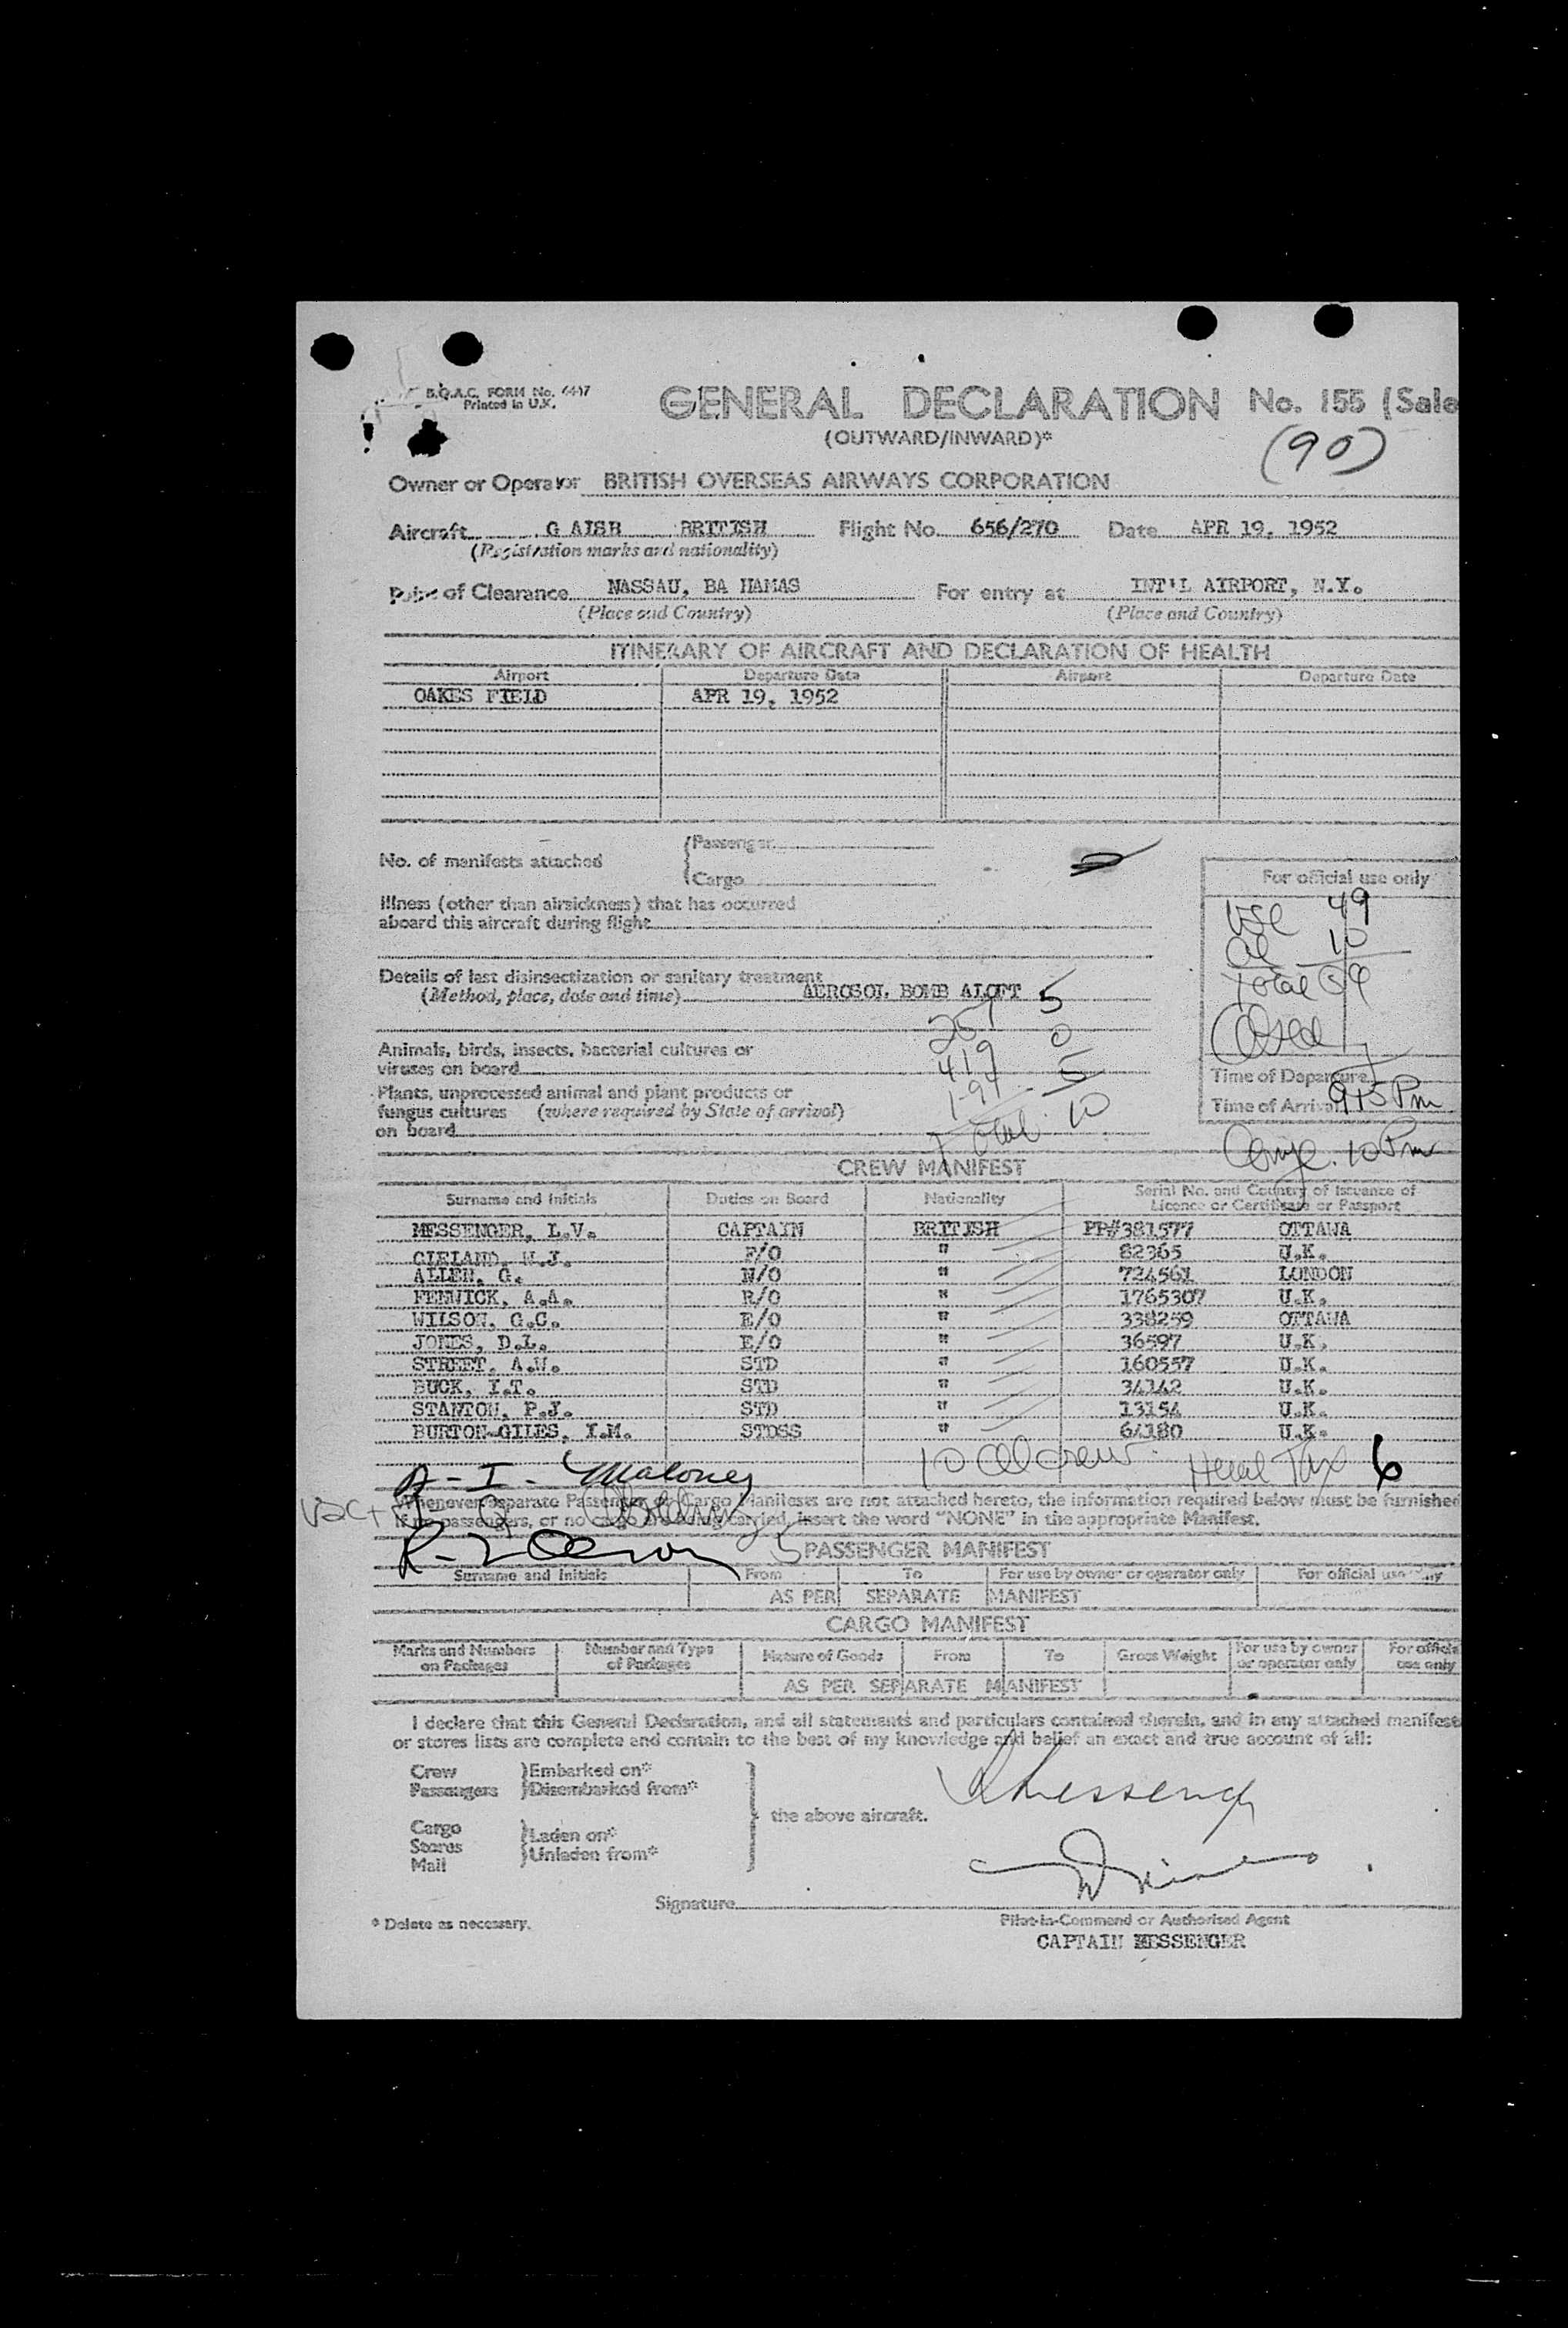 B.O.A.C. FORM No. 4447
Printed in U.K.
GENERAL DECLARATION No. 155 (Sale
(OUTWARD/INWARD)*
(90)
Owner or Operator BRITISH OVERSEAS AIRWAYS CORPORATION
Aircraft G AISB BRITISH Flight No. 656/270 Date APR 19, 1952
(Registration marks and nationality)
of Clearance NASSAU, BA HAMAS For entry at INT'L AIRPORT, N.Y.
(Place and Country) (Place and Country)
ITINERARY OF AIRCRAFT AND DECLARATION OF HEALTH
Airport Departure Date Airport Departure Date
OAKES FIELD APR 19, 1952
No. of manifests attached Passenger
Cargo
For official use only
Illness (other than airsickness) that has occurred
aboard this aircraft during flight
49
10
Total 59
Details of last disinsectization or sanitary treatment
(Method, place, date and time) AEROSOL BOMB ALOFT 5
257 0
Animals, birds, insects, bacterial cultures or
viruses on board 419 5
Time of Departure
Plants, unprocessed animal and plant products or
fungus cultures (where required by State of arrival)
on board
Total 10
Time of Arrival 915 Pm
10 Pm
CREW MANIFEST
Surname and Initials Duties on Board Nationality Serial No. and Country of Issuance of
Licence or Certificate or Passport
MESSENGER, L.V. CAPTAIN BRITISH PP#381577 OTTAWA
CLELAND, W.J. F/O " 82365 U.K.
ALLEN, G. N/O " 724561 LONDON
FENWICK, A.A. R/O " 1765307 U.K.
WILSON, G.C. E/O " 338259 OTTAWA
JONES, D.L. E/O " 36597 U.K.
STREET, A.W. STD " 160557 U.K.
BUCK, I.T. STD " 34142 U.K.
STANTON, P.J. STD " 13154 U.K.
BURTON-GILES, I.M. STDSS " 64180 U.K.
A - I - Maloney 10 crew Head Tax 6
Whenever separate Passenger or Cargo Manifests are not attached hereto, the information required below must be furnished
If no passengers, or no cargo are being carried, insert the word "NONE" in the appropriate Manifest.
PASSENGER MANIFEST
Surname and Initials From To For use by owner or operator only For official use only
AS PER SEPARATE MANIFEST
CARGO MANIFEST
Marks and Numbers on Packages Number and Type of Packages Nature of Goods From To Gross Weight For use by owner or operator only For official use only
AS PER SEPARATE MANIFEST
I declare that this General Declaration, and all statements and particulars contained therein, and in any attached manifest
or stores lists are complete and contain to the best of my knowledge and belief an exact and true account of all:
Crew Embarked on*
Passengers Disembarked from*
the above aircraft.
Cargo
Stores Laden on*
Mail Unladen from*
Messenger
Signature
* Delete as necessary. Pilot-in-Command or Authorised Agent
CAPTAIN MESSENGER